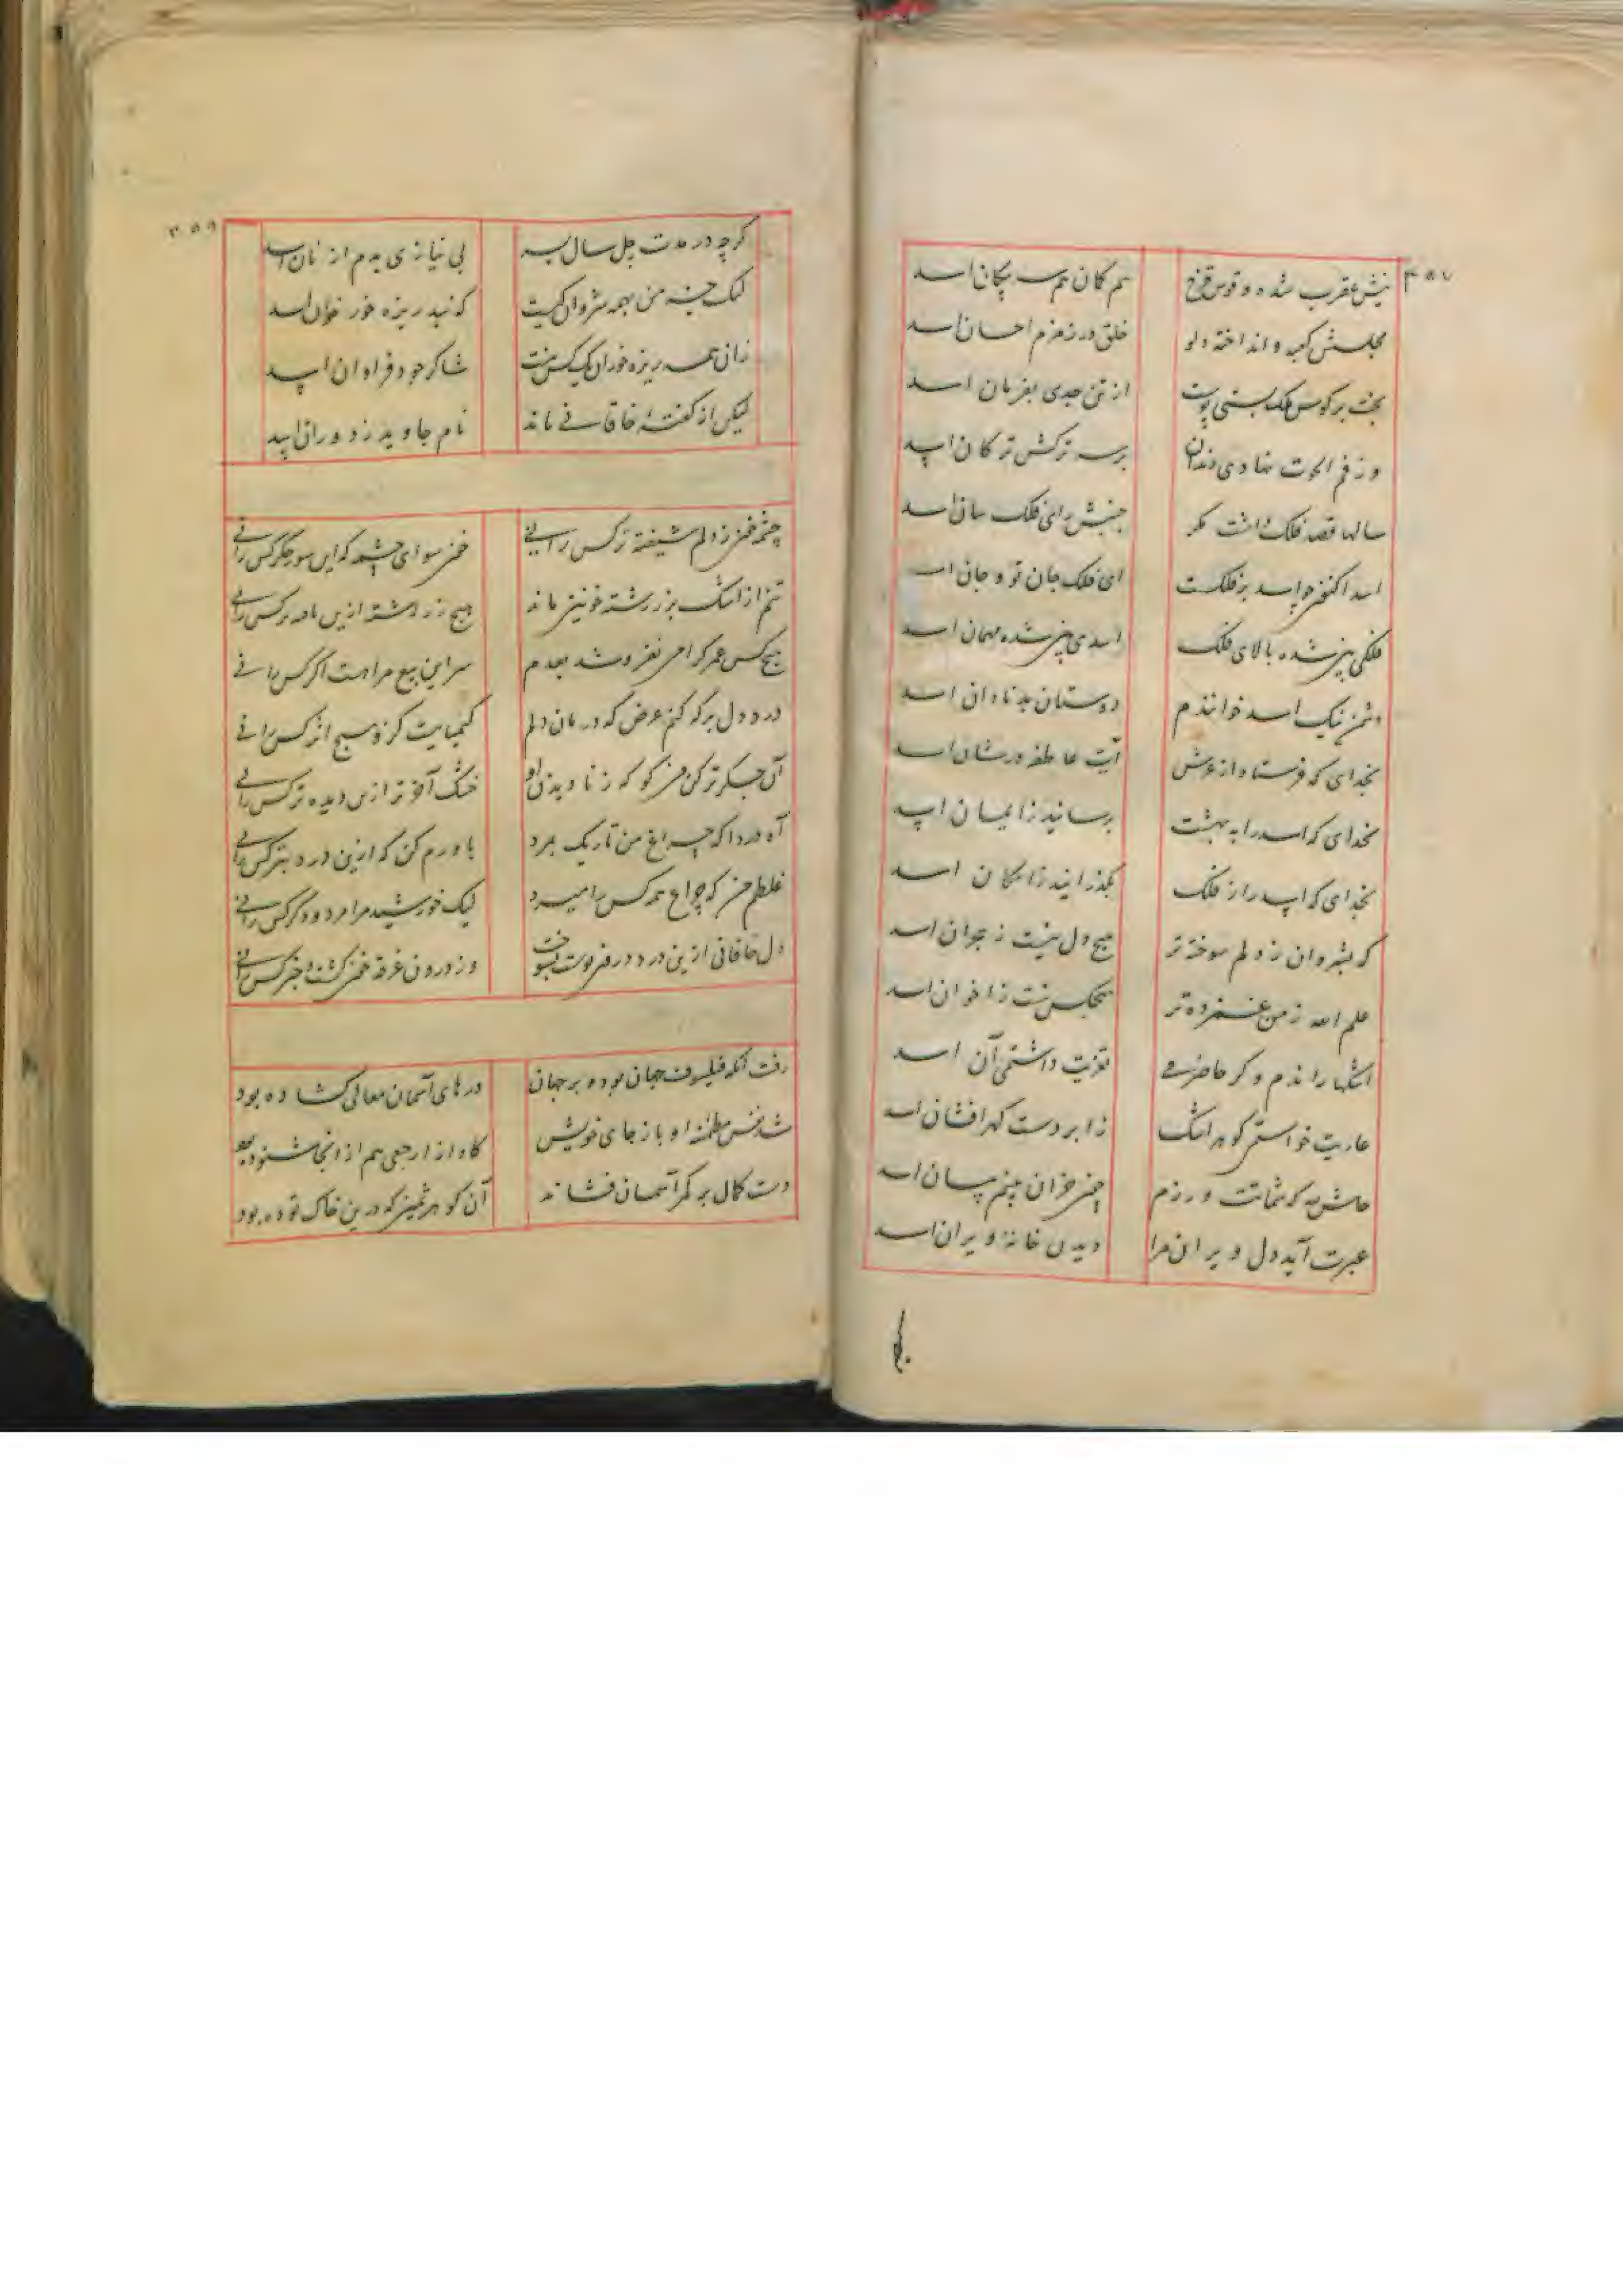 ۳۵۷
نیش عقرب شده و قوس قزح هم کمان هم سر پیکان اسد
مجلسش کعبه و انداخته دلو خلق در زمزم احسان اسد
بخت بر کوس فلک بستی پوست از تن جدی بفرمان اسد
وز فم الحوت نهادی دندان بر سر ترکش ترکان اسد
سالها قصد فلک داشت مگر جنبش رای فلک سان اسد
اسد اکنون چو اسد بر فلکست ای فلک جان تو و جان اسد
فلکی بین شده بالای فلک اسدی بین شده مهمان اسد
دشمن نیک اسد خوانندم دوستان بد نادان اسد
بخدای که فرستاد از عرش آیت عاطفه در شان اسد
بخدای که اسد را به بهشت برسانید ز ایمان اسد
بخدای که اسد را ز فلک بگذرانید ز امکان اسد
که بشروان ز دلم سوخته تر هیچ دل نیست ز هجران اسد
علم الله ز من غمزده تر هیچکس نیست ز اخوان اسد
اشکها راندم و گر حاضرمی تعزیت داشتمی آن اسد
عاریت خواستمی گوهر اشک ز ابر دست گهر افشان اسد
حاش لله که شماتت ورزم چون خزان بینم بستان اسد
عبرت آید دل ویران مرا دیدن خانهٔ ویران اسد
۳۵۸
گرچه در مدت چل سال بسه بی نیازی بدم از نان اسد
لیک جز من بهمه شروان کیست که نبد ریزه خور خوان اسد
زان همه ریزه خوران یک کس نیست شاکر جود فراوان اسد
لیکن از گفتهٔ خاقانی ماند نام جاوید ز دوران اسد
چشمه خون ز دلم شیفته تر کس رانی خون سوای چشمه که این سو جگر کس رانی
تنم از اشک بزر رشته خونین ماند هیچ زر رشته ازین تافته تر کس رانی
هیچ کس عمر گرامی نفروشد بعدم سر این بیع مرا هست اگر کس رانی
درد دل بر که کنم عرض که درمان دلم کیمیاییست کزو هیچ اثر کس رانی
آن جگر تر کن من کو که ز نادیدن او خشک آخور تر ازین دیده تر کس رانی
آه دردا که چراغ من تاریک بمرد باورم کن که ازین درد بتر کس رانی
غلطم من که چراغ همه کس را میرد لیک خورشید مرا مرد و دگر کس رانی
دل خاقانی ازین درد درون پوست بسوخت وز درون غرقه خون گشت و خبر کس رانی
رفت آنکه فیلسوف جهان بود و بر جهان درهای آسمان معالی گشاده بود
شد نفس مطمئنه او باز جای خویش کاواز ارجعی هم از آنجا شنوده بود
دست کمال بر کمر آسمان نشاند آن گوهر ثمین که درین خاک توده بود